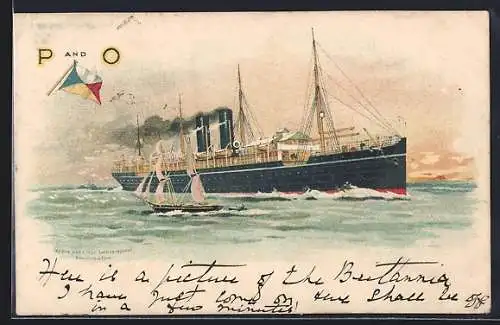 P AND O
Here is a picture of the Britannia
I have just come on here shall be off
in a few minutes